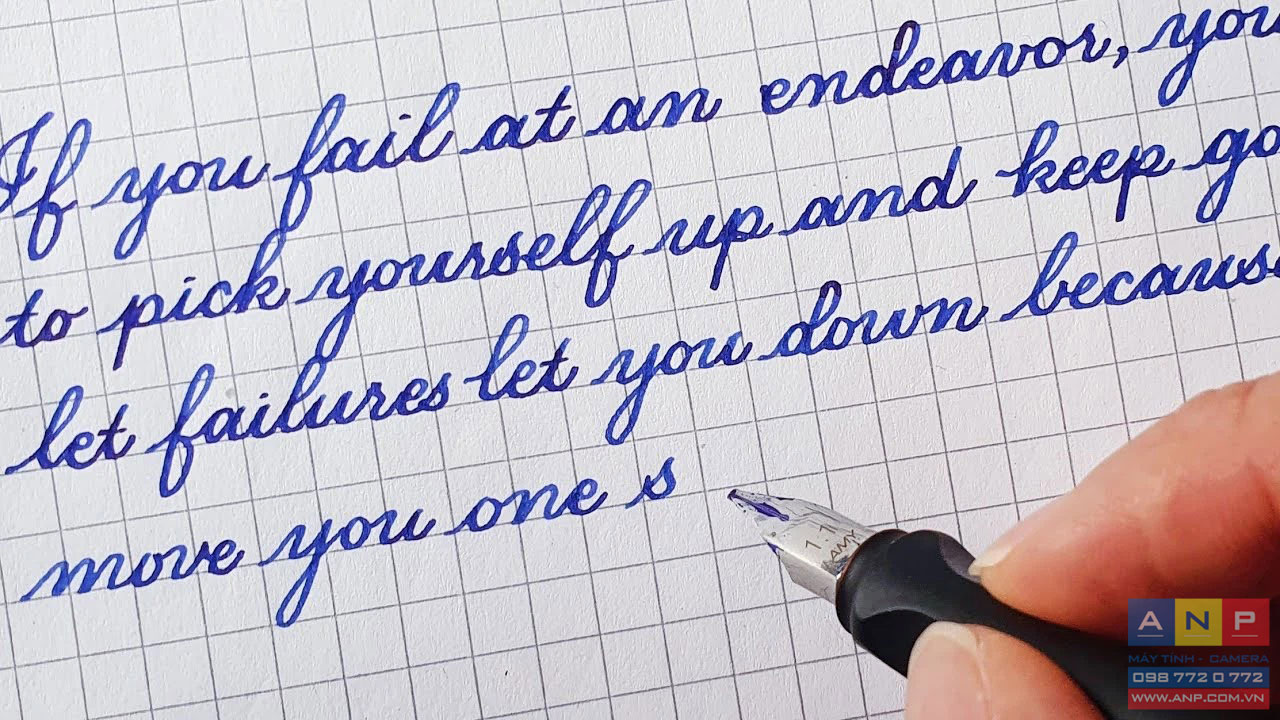 If you fail at an endeavor, you
to pick yourself up and keep go
let failures let you down because
move you one s
1.1
LAMY
ANP
MÁY TÍNH - CAMERA
098 772 0 772
WWW.ANP.COM.VN